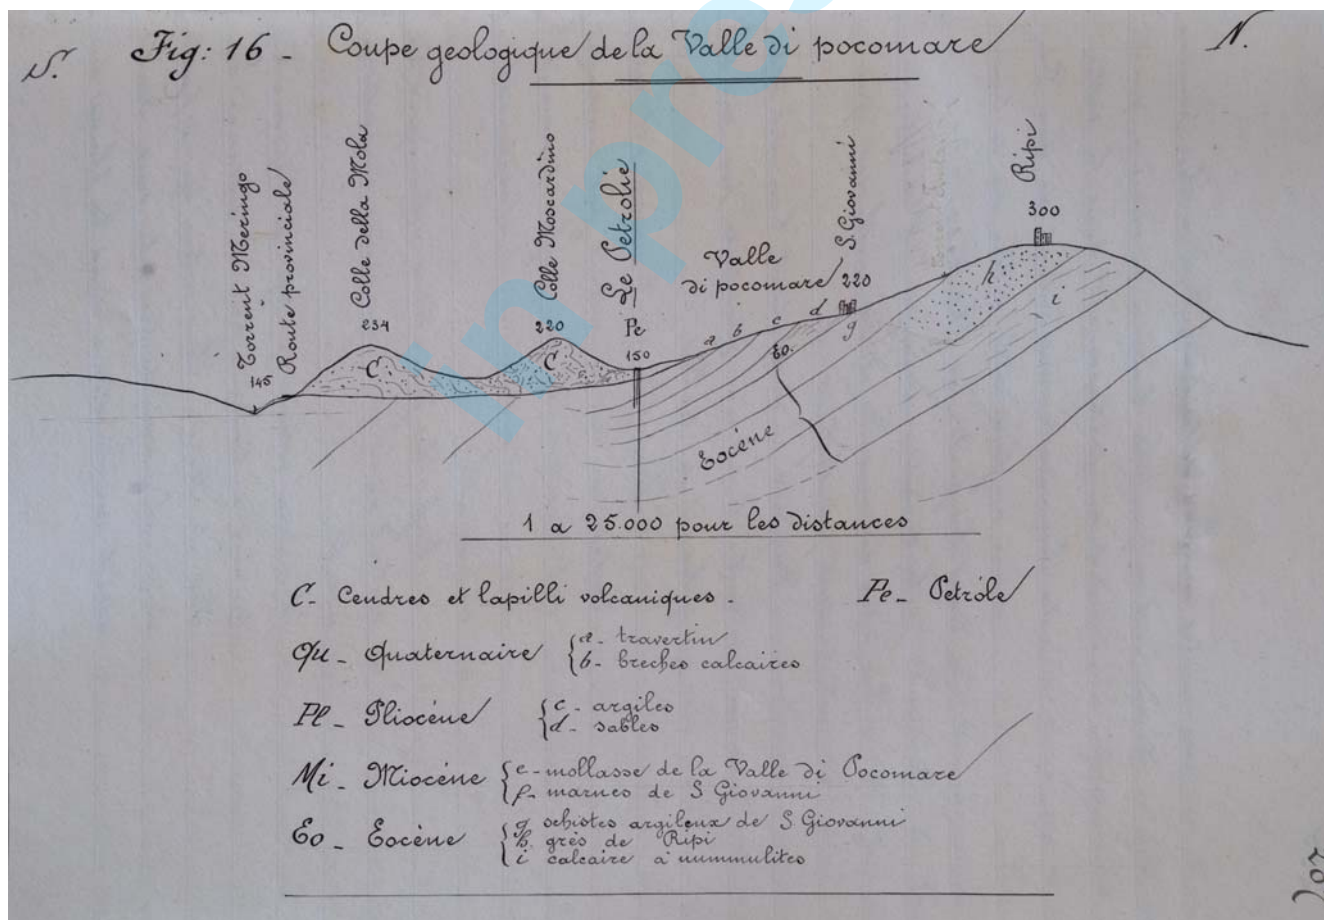 S. Fig: 16 - Coupe geologique de la Valle di pocomare N.
Torrent Meringo
Route provinciale
Colle della Mola
Colle Moscardino
Le Petrolie
S. Giovanni
Ripi
145
234
220
Pe
150
Valle
di pocomare
220
300
a b c d g h i
C C
Eo.
Eocène
1 a 25.000 pour les distances
C - Cendres et lapilli volcaniques - Pe - Petróle
Qu - Quaternaire { a - travertin
b - breches calcaires
Pl - Pliocène { c - argiles
d - sables
Mi - Miocène { e - mollasse de la Valle di Pocomare
f - marnes de S Giovanni
Eo - Eocène { g schistes argileux de S Giovanni
h. grès de Ripi
i calcaire a nummulites
in pre